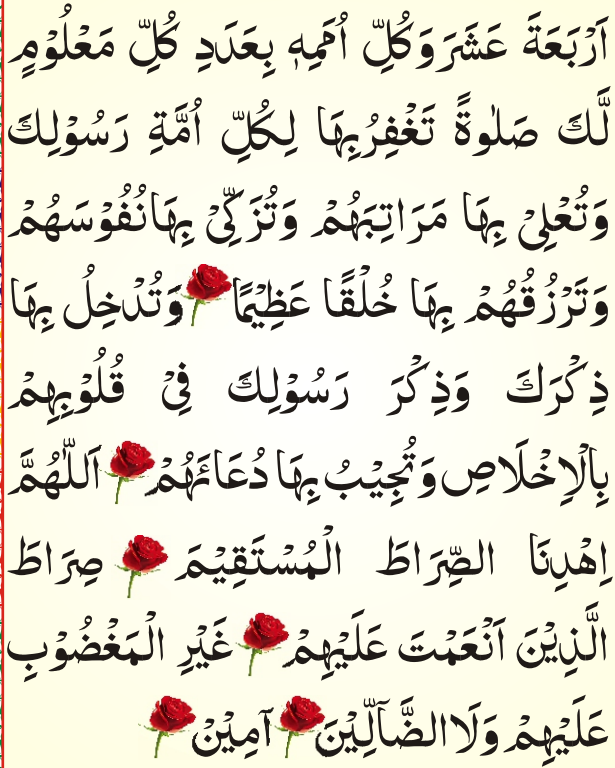 اَرْبَعَةَ عَشَرَ وَكُلِّ اُمَمِهٖ بِعَدَدِ كُلِّ مَعْلُوْمٍ
لَّكَ صَلٰوةً تَغْفِرُبِهَا لِكُلِّ اُمَّةِ رَسُوْلِكَ
وَتُعْلِيْ بِهَا مَرَاتِبَهُمْ وَتُزَكِّيْ بِهَانُفُوْسَهُمْ
وَتَرْزُقُهُمْ بِهَا خُلْقًا عَظِيْمًا وَتُدْخِلُ بِهَا
ذِكْرَكَ وَذِكْرَ رَسُوْلِكَ فِيْ قُلُوْبِهِمْ
بِالْاِخْلَاصِ وَتُجِيْبُ بِهَا دُعَائَهُمْ اَللّٰهُمَّ
اِهْدِنَا الصِّرَاطَ الْمُسْتَقِيْمَ صِرَاطَ
الَّذِيْنَ اَنْعَمْتَ عَلَيْهِمْ غَيْرِ الْمَغْضُوْبِ
عَلَيْهِمْ وَلَا الضَّآلِّيْنَ آمِيْنَ